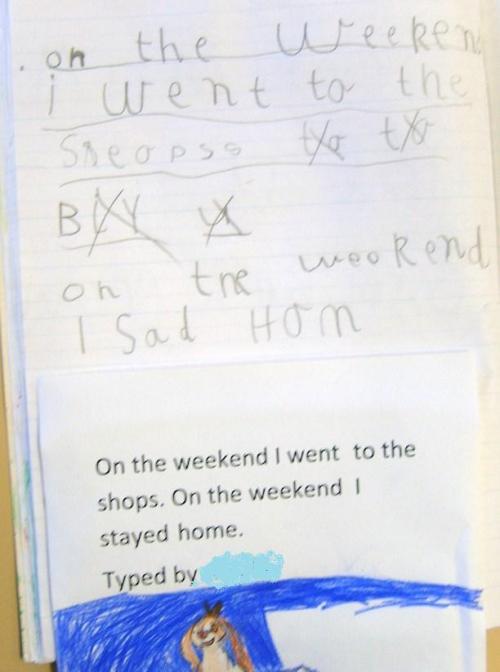 on the Weekend
i went to the
Sheopss to to
B
on the weekend
I Sad Hom
On the weekend I went to the
shops. On the weekend I
stayed home.
Typed by